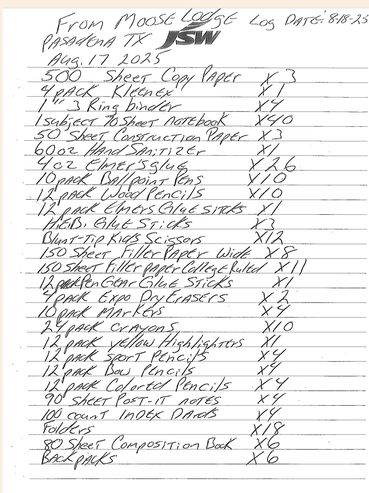 From Moose Lodge Log Date: 8-18-25
Pasadena TX JSW
Aug. 17 2025
500 Sheet Copy Paper X 3
4 pack Kleenex X 1
1" 3 Ring binder X 4
1 subject 70 Sheet notebook X40
50 Sheet Construction Paper X 3
60 oz Hand Sanitizer X 1
4 oz Elmer's glue X 26
10 pack Ballpoint Pens X 10
12 pack Wood Pencils X10
12 pack Elmers Glue sticks X 1
HEB: Glue Sticks X 3
Blunt-Tip Kids Scissors X12
150 Sheet Filler Paper Wide X 8
150 Sheet Filler paper College Ruled X 11
12 pack Pen Gear Glue Sticks X1
4 pack Expo Dry Erasers X 2
10 pack Markers X 4
24 pack Crayons X10
12 pack yellow Highlighters X 1
12 pack Sport Pencils X 4
12 pack Bow Pencils X 4
12 pack Colored Pencils X 4
90 sheet Post-it notes X 4
100 count Index Dards X 4
Folders X18
80 Sheet Composition Book X6
Backpacks X 6